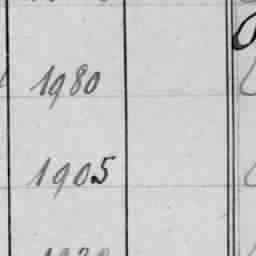 1980
1905